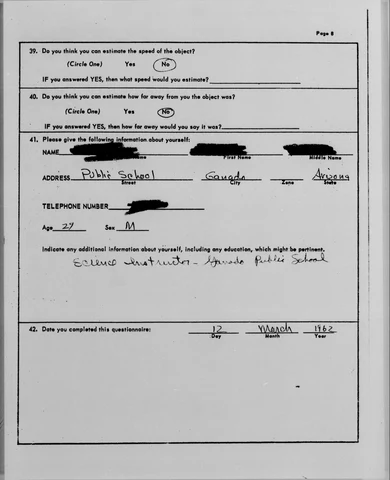 Page 8
39. Do you think you can estimate the speed of the object?
(Circle One) Yes No
IF you answered YES, then what speed would you estimate?
40. Do you think you can estimate how far away from you the object was?
(Circle One) Yes No
IF you answered YES, then how far away would you say it was?
41. Please give the following information about yourself:
NAME
Name First Name Middle Name
ADDRESS Public School Ganado Arizona
Street City Zone State
TELEPHONE NUMBER
Age 27 Sex M
Indicate any additional information about yourself, including any education, which might be pertinent.
Science Instructor - Ganado Public School
42. Date you completed this questionnaire: 12 March 1962
Day Month Year